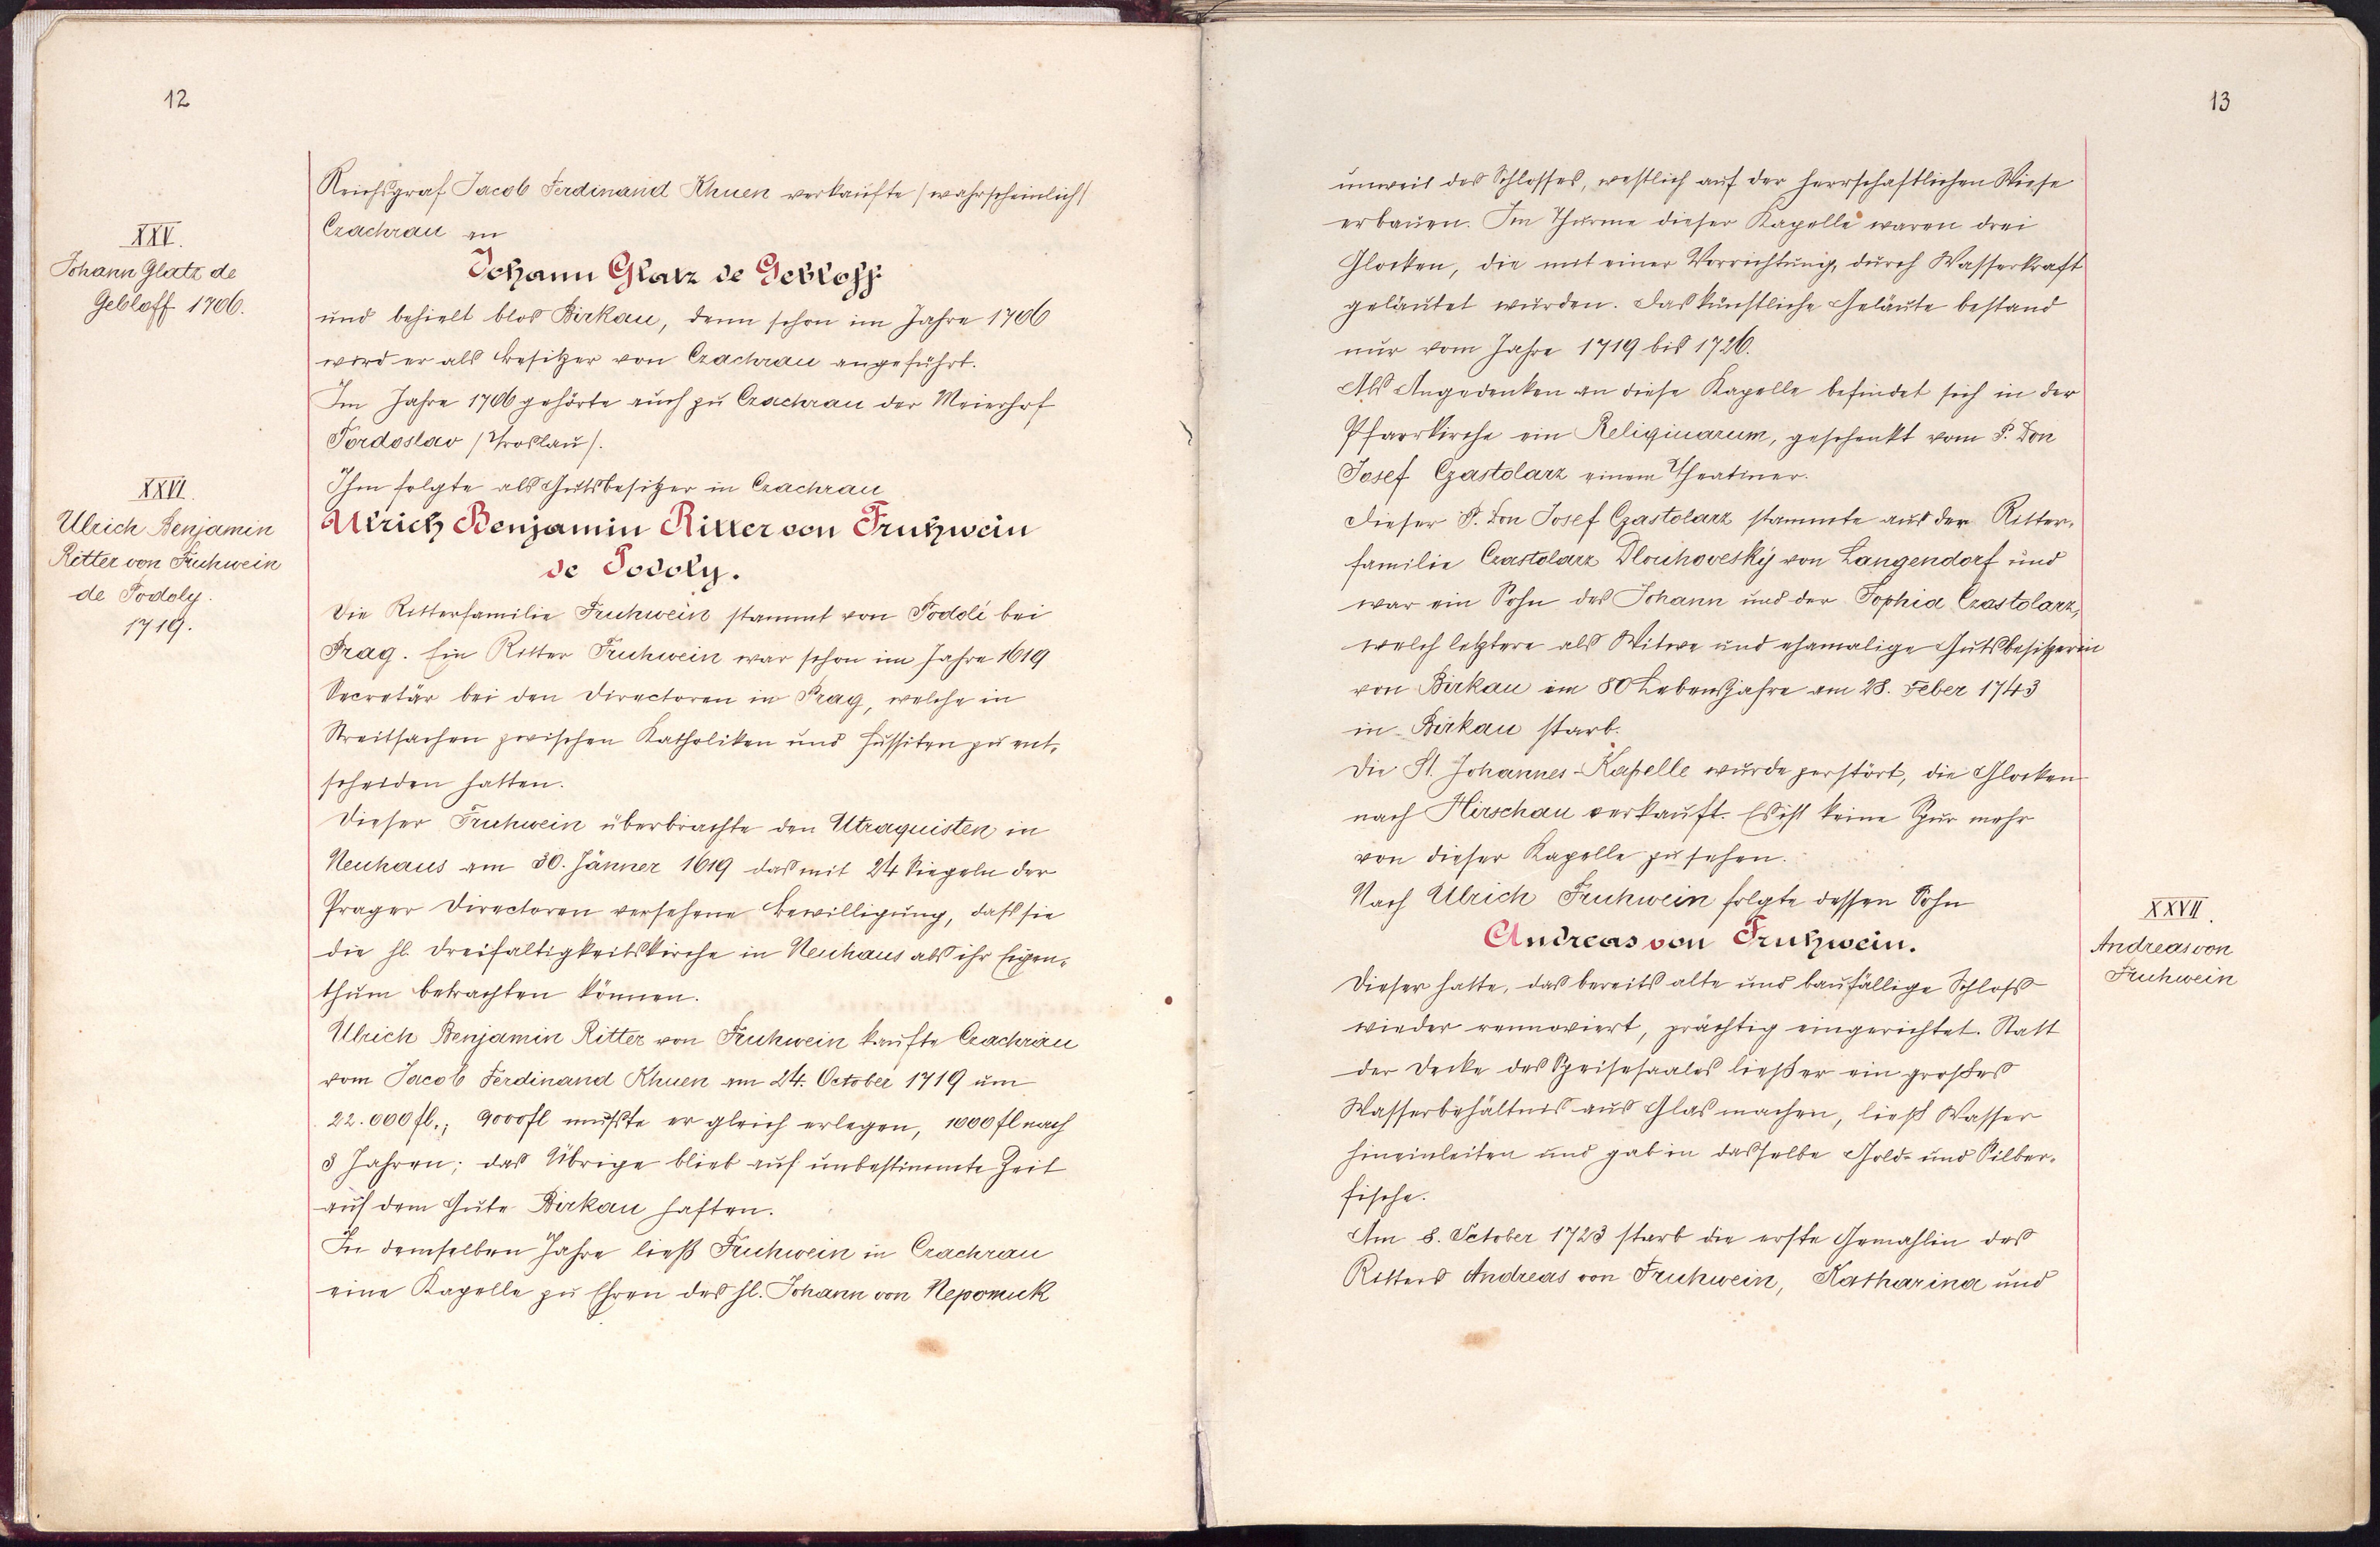 12
XXV.
Johann Glatz de
Gebloff 1706.
Reichsgraf Jacob Ferdinand Khuen verkaufte /wahrscheinlich/
Czachrau an
Johann Glatz de Gebloff
und behielt blos Birkau, denn schon im Jahre 1706
wird er als Besitzer von Czachrau angeführt.
Im Jahre 1706 gehörte auch zu Czachrau der Meierhof
Tordoslav /Troslau/.
Ihm folgte als Gutsbesitzer in Czachrau
XXVI.
Ulrich Benjamin
Ritter von Fruhwein
de Podoly.
1719.
Ulrich Benjamin Ritter von Fruhwein
de Podoly.
Die Ritterfamilie Fruhwein stammt von Poddli bei
Prag. Ein Ritter Fruhwein war schon im Jahre 1619
Secretär bei den Directoren in Prag, welche in
Streitsachen zwischen Katholiken und Hussiten zu ent-
scheiden hatten.
Dieser Fruhwein überbrachte den Utraquisten in
Neuhaus am 30. Jänner 1619 das mit 24 Siegeln der
Prager Directoren versehene Bewilligung, daß sie
die hl. Dreifaltigkeitskirche in Neuhaus als ihr Eigen-
thum betrachten können.
Ulrich Benjamin Ritter von Fruhwein kaufte Czachrau
vom Jacob Ferdinand Khuen am 24. October 1719 um
22.000 fl.; 9000 fl mußte er gleich erlegen, 1000 fl nach
3 Jahren; das Übrige blieb auf unbestimmte Zeit
auf dem Gute Birkau haften.
In demselben Jahre ließ Fruhwein in Czachrau
eine Kapelle zu Ehren des hl. Johann von Nepomuk
13
unweit des Schlosses, westlich auf der herrschaftlichen Wiese
erbauen. Im Thurme dieser Kapelle waren drei
Glocken, die mit einer Vorrichtung, durch Wasserkraft
geläutet wurden. Das künstliche Geläute bestand
nur vom Jahre 1719 bis 1726.
Als Angedenken an diese Kapelle befindet sich in der
Pfarrkirche ein Reliquiarum, geschenkt vom P. Don
Josef Czastolarz einem Theatiner.
Dieser P. Don Josef Czastolarz stammte aus der Ritter-
familie Czastolarz Dlouhoveský von Langendorf und
war ein Sohn des Johann und der Sophia Czastolarz,
welch letztere als Witwe und ehamalige Gutsbesitzerin
von Birkau im 80 Lebensjahre am 28. Feber 1743
in Birkau starb.
Die St. Johannes-Kapelle wurde zerstört, die Glocken
nach Hirschau verkauft. Es ist keine Spur mehr
von dieser Kapelle zu sehen.
Nach Ulrich Fruhwein folgte dessen Sohn
XXVII.
Andreas von
Fruhwein
Andreas von Fruhwein.
Dieser hatte, das bereits alte und baufällige Schloß
wieder rennoviert, prächtig eingerichtet. Statt
der Decke des Speisesaales ließ er ein großes
Wasserbehältnis aus Glas machen, ließ Wasser
hineinleiten und gab in dasselbe Gold- und Silber-
fische.
Am 8. October 1723 starb die erste Gemahlin des
Ritters Andreas von Fruhwein, Katharina und